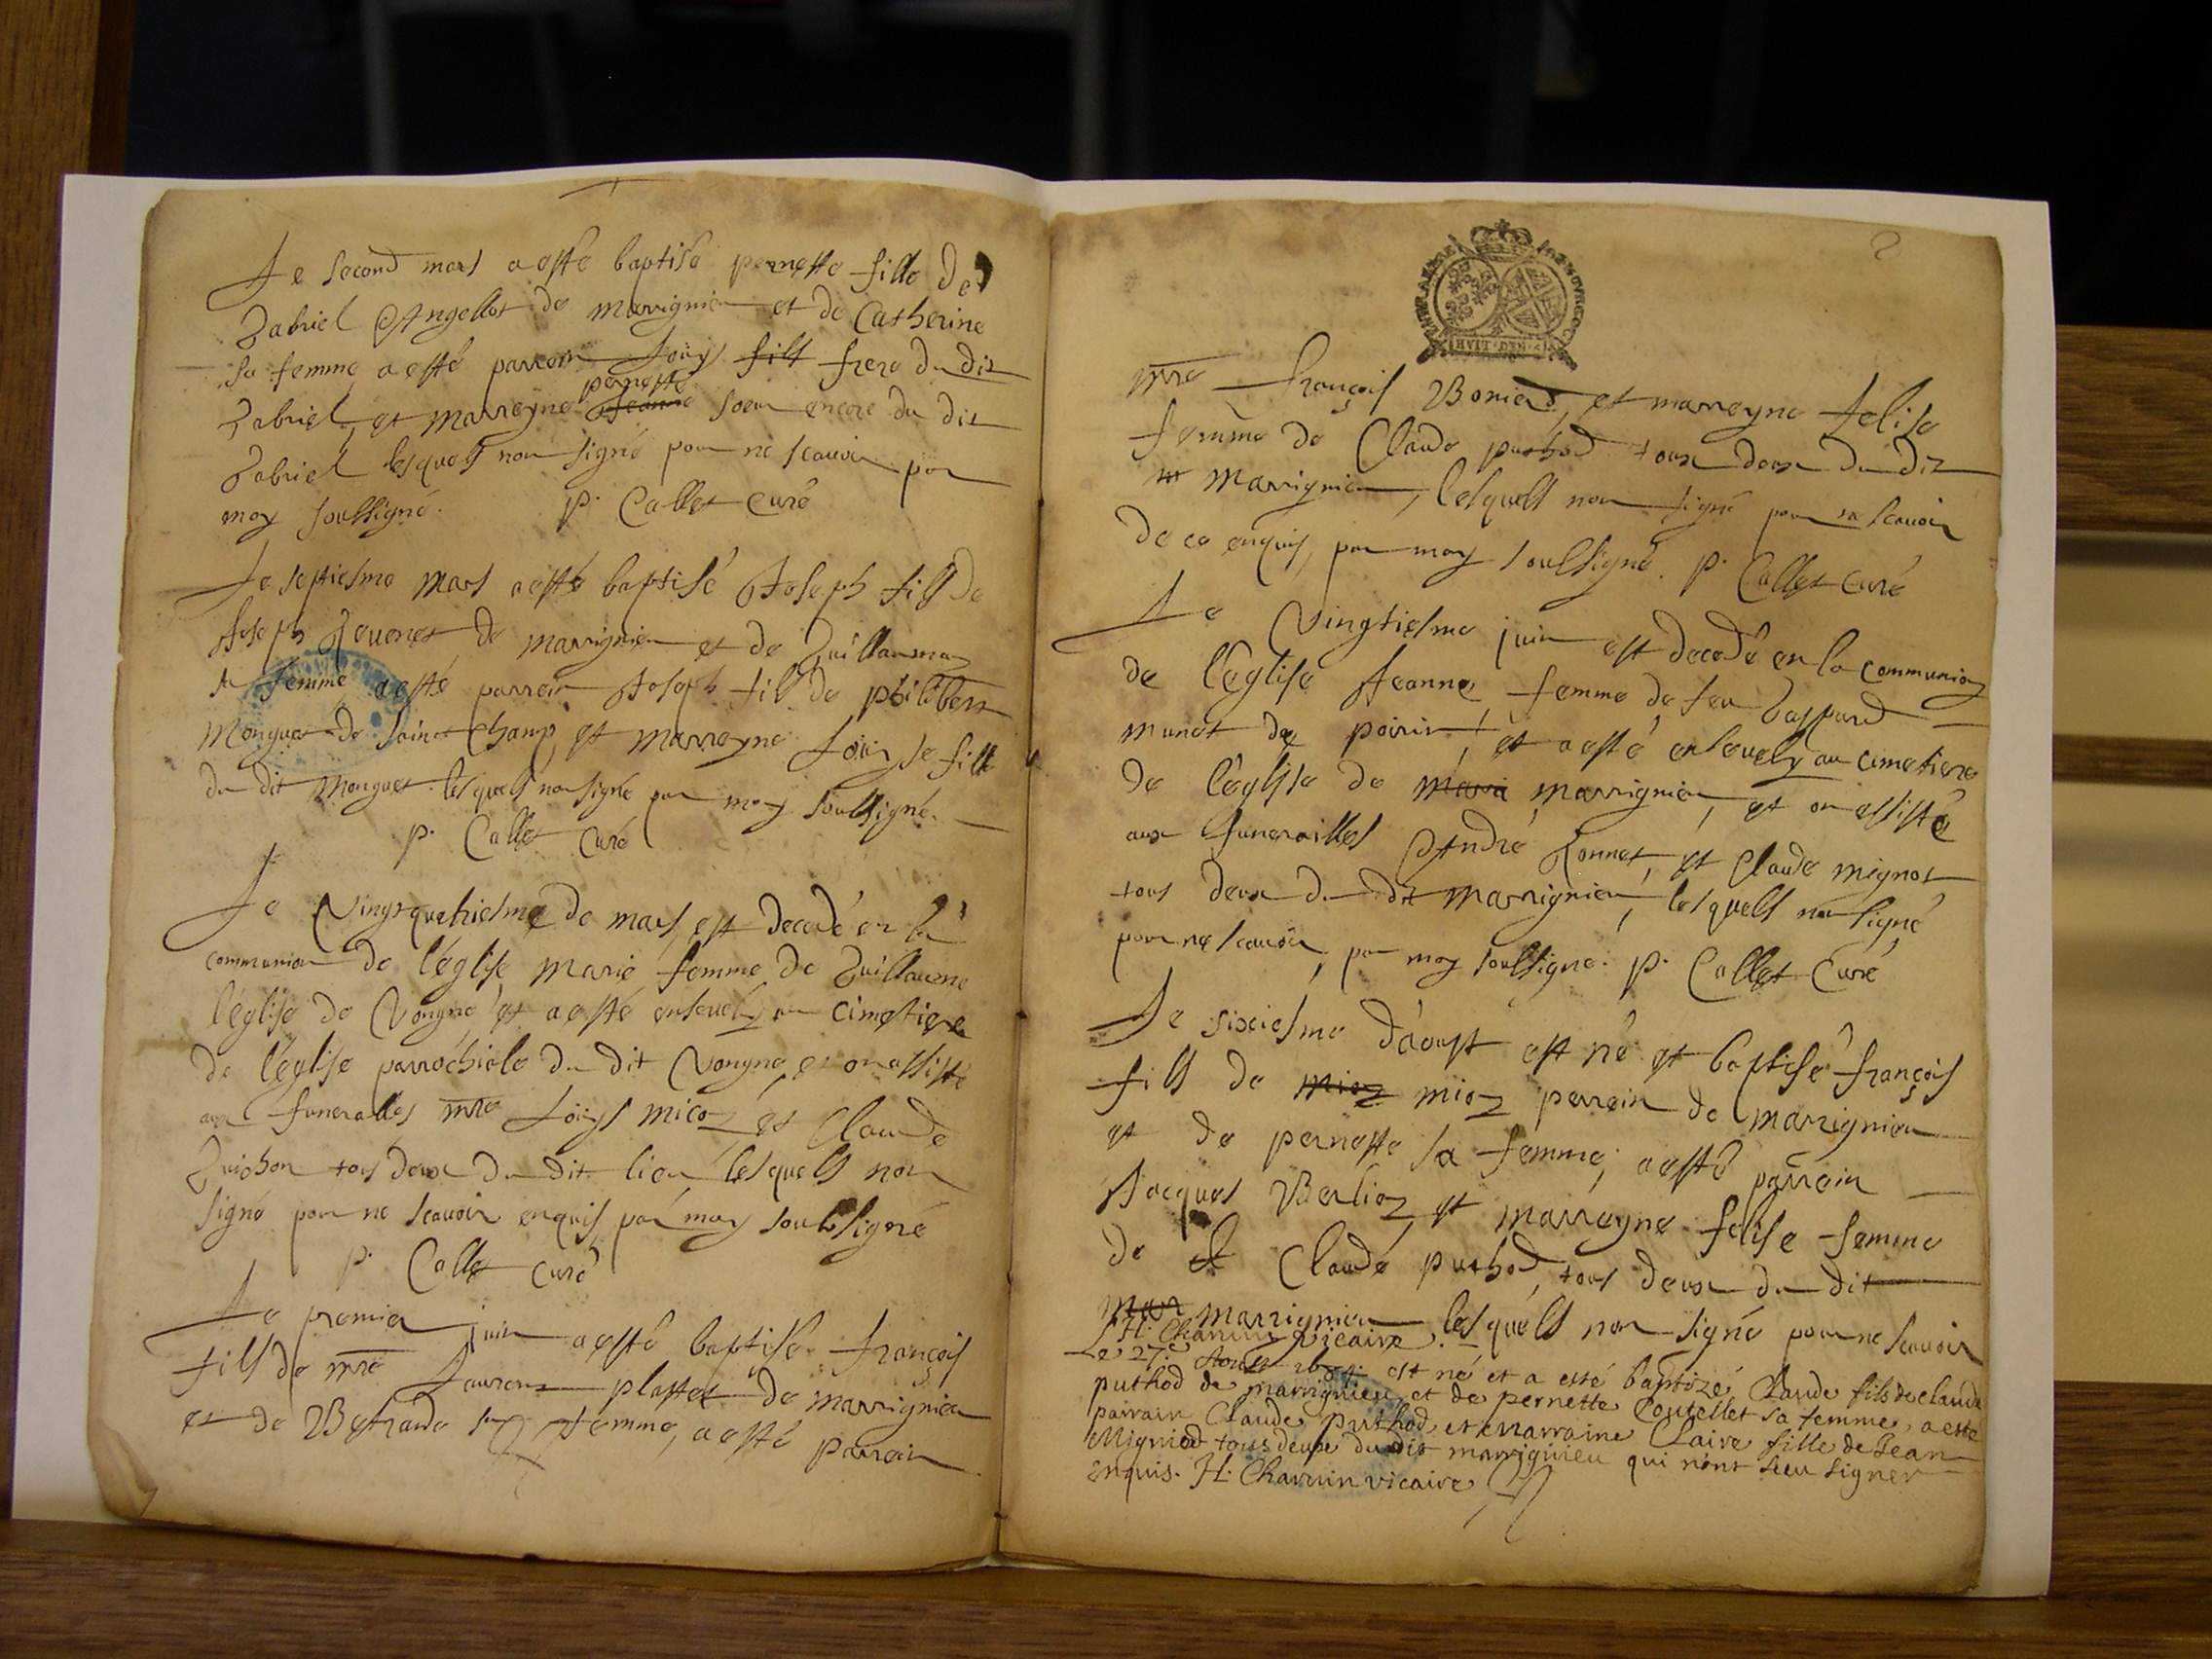 Le second mars a esté baptisé pernette fille de
Gabriel Angellot de marrignieu et de Catherine
sa femme, a esté parrein Loüys fils frere du dit
Gabriel, et marreyne Jeanne pernette soeur encore du dit
Gabriel lesquels n'on signé pour ne scauoir par
moy soubsigné. p. Collet curé
Le septiesme mars a esté baptisé Joseph fils de
Joseph de marrignieu et de Guillauma
sa femme a esté parrein Joseph fils de philibert
monguet de sainct champ, et marreyne Loüyse fille
du dit monguet lesquels n'on signé par moy soubsigné.
p. Collet curé
Le vingtquatriesme de mars est decedé en la
communion de l'église, marie femme de Guillaume
l'église de Vongne et a esté enseuely au cimetiere
de l'église parrochiale du dit Vongne, et on assisté
aux funeralles mre Loüys micoz et Claude
Guichon tous deux du dit lieu, lesquels n'on
signé pour ne scauoir enquis par moy soubsigné
p. Collet curé
Le premier juin a esté baptisé françois
fils de mre Laurens plastet de marrignieu
et de sa femme, a esté parrein
HVIT DEN
mre françois et marreyne felise
femme de Claude puthod tous deux du dit
marrignieu, lesquels n'on signé pour ne scauoir
de ce enquis, par moy soubsigné. p. Collet curé
Le vingtiesme juin est decedé en la communion
de l'église Jeanne, femme de feu Gaspard
munet de poirin, et a esté enseuely au cimetiere
de l'églisse de mari marrignieu, et on assisté
aux funerailles André et Claude mignot
tous deux du dit marrignieu, lesquels n'on signé
pour ne scauoir, par moy soubsigné. p. Collet Curé
Le sixiesme d'aoust est né et baptisé françois
fils de mioz mioz perrein de marrignieu
et de pernette sa femme, a esté parrein
Jacques Berlioz et marreyne felise femme
de Claude puthod, tous deux du dit
mar marrignieu lesquels n'on signé pour ne scauoir
H. Charuin vicaire.
Le 27. Aoust est né et a esté baptizé Claude fils de claude
puthod de marrignieu et de pernette Coutellet sa femme, a esté
parrain Claude puthod, et marraine Claire fille de Jean
Migniod tous deux du dit marrignieu qui n'ont sceu signer
enquis. H. Charuin vicaire